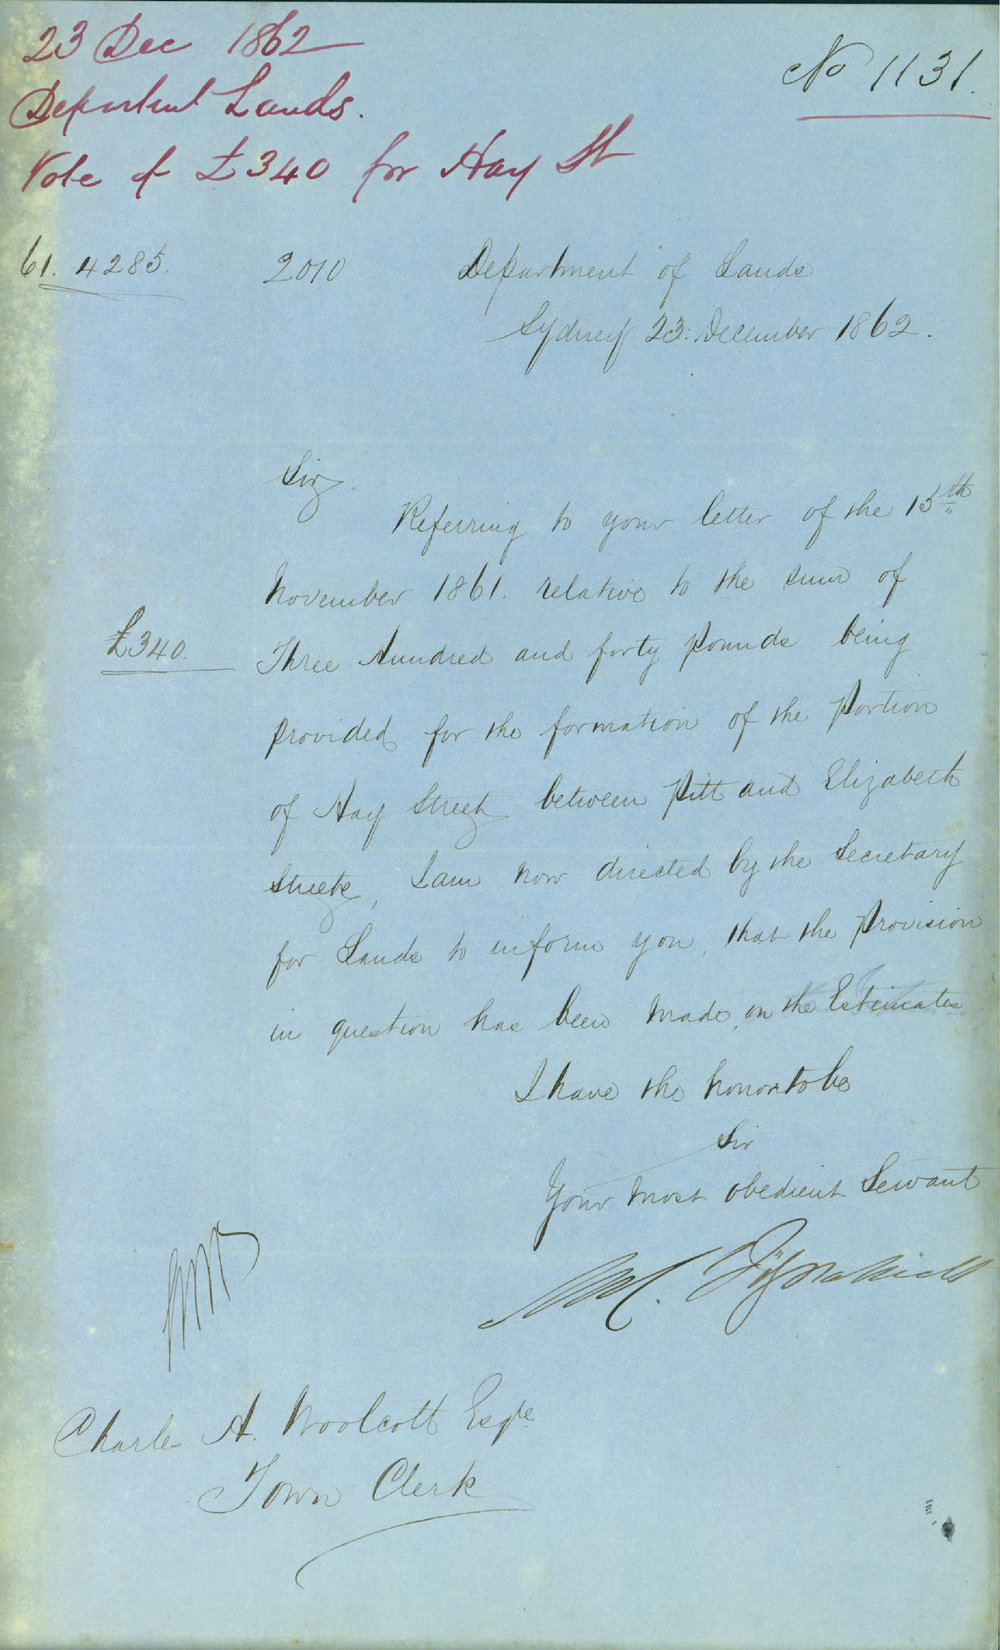 23 Dec 1862
Department Lands.
Vote of £340 for Hay St
No 1131.
61. 4285. 2010 Department of Lands
Sydney 23: December 1862.
Sir,
Referring to your letter of the 15th
November 1861. relative to the sum of
£340. Three Hundred and forty pounds being
provided for the formation of the portion
of Hay Street between Pitt and Elizabeth
Streets, I am now directed by the Secretary
for Lands to inform you, that the provision
in question has been made, on the Estimates
I have the honor to be
Sir
Your most obedient Servant
M. Fitzpatrick
Charles A. Woolcott Esqre
Town Clerk